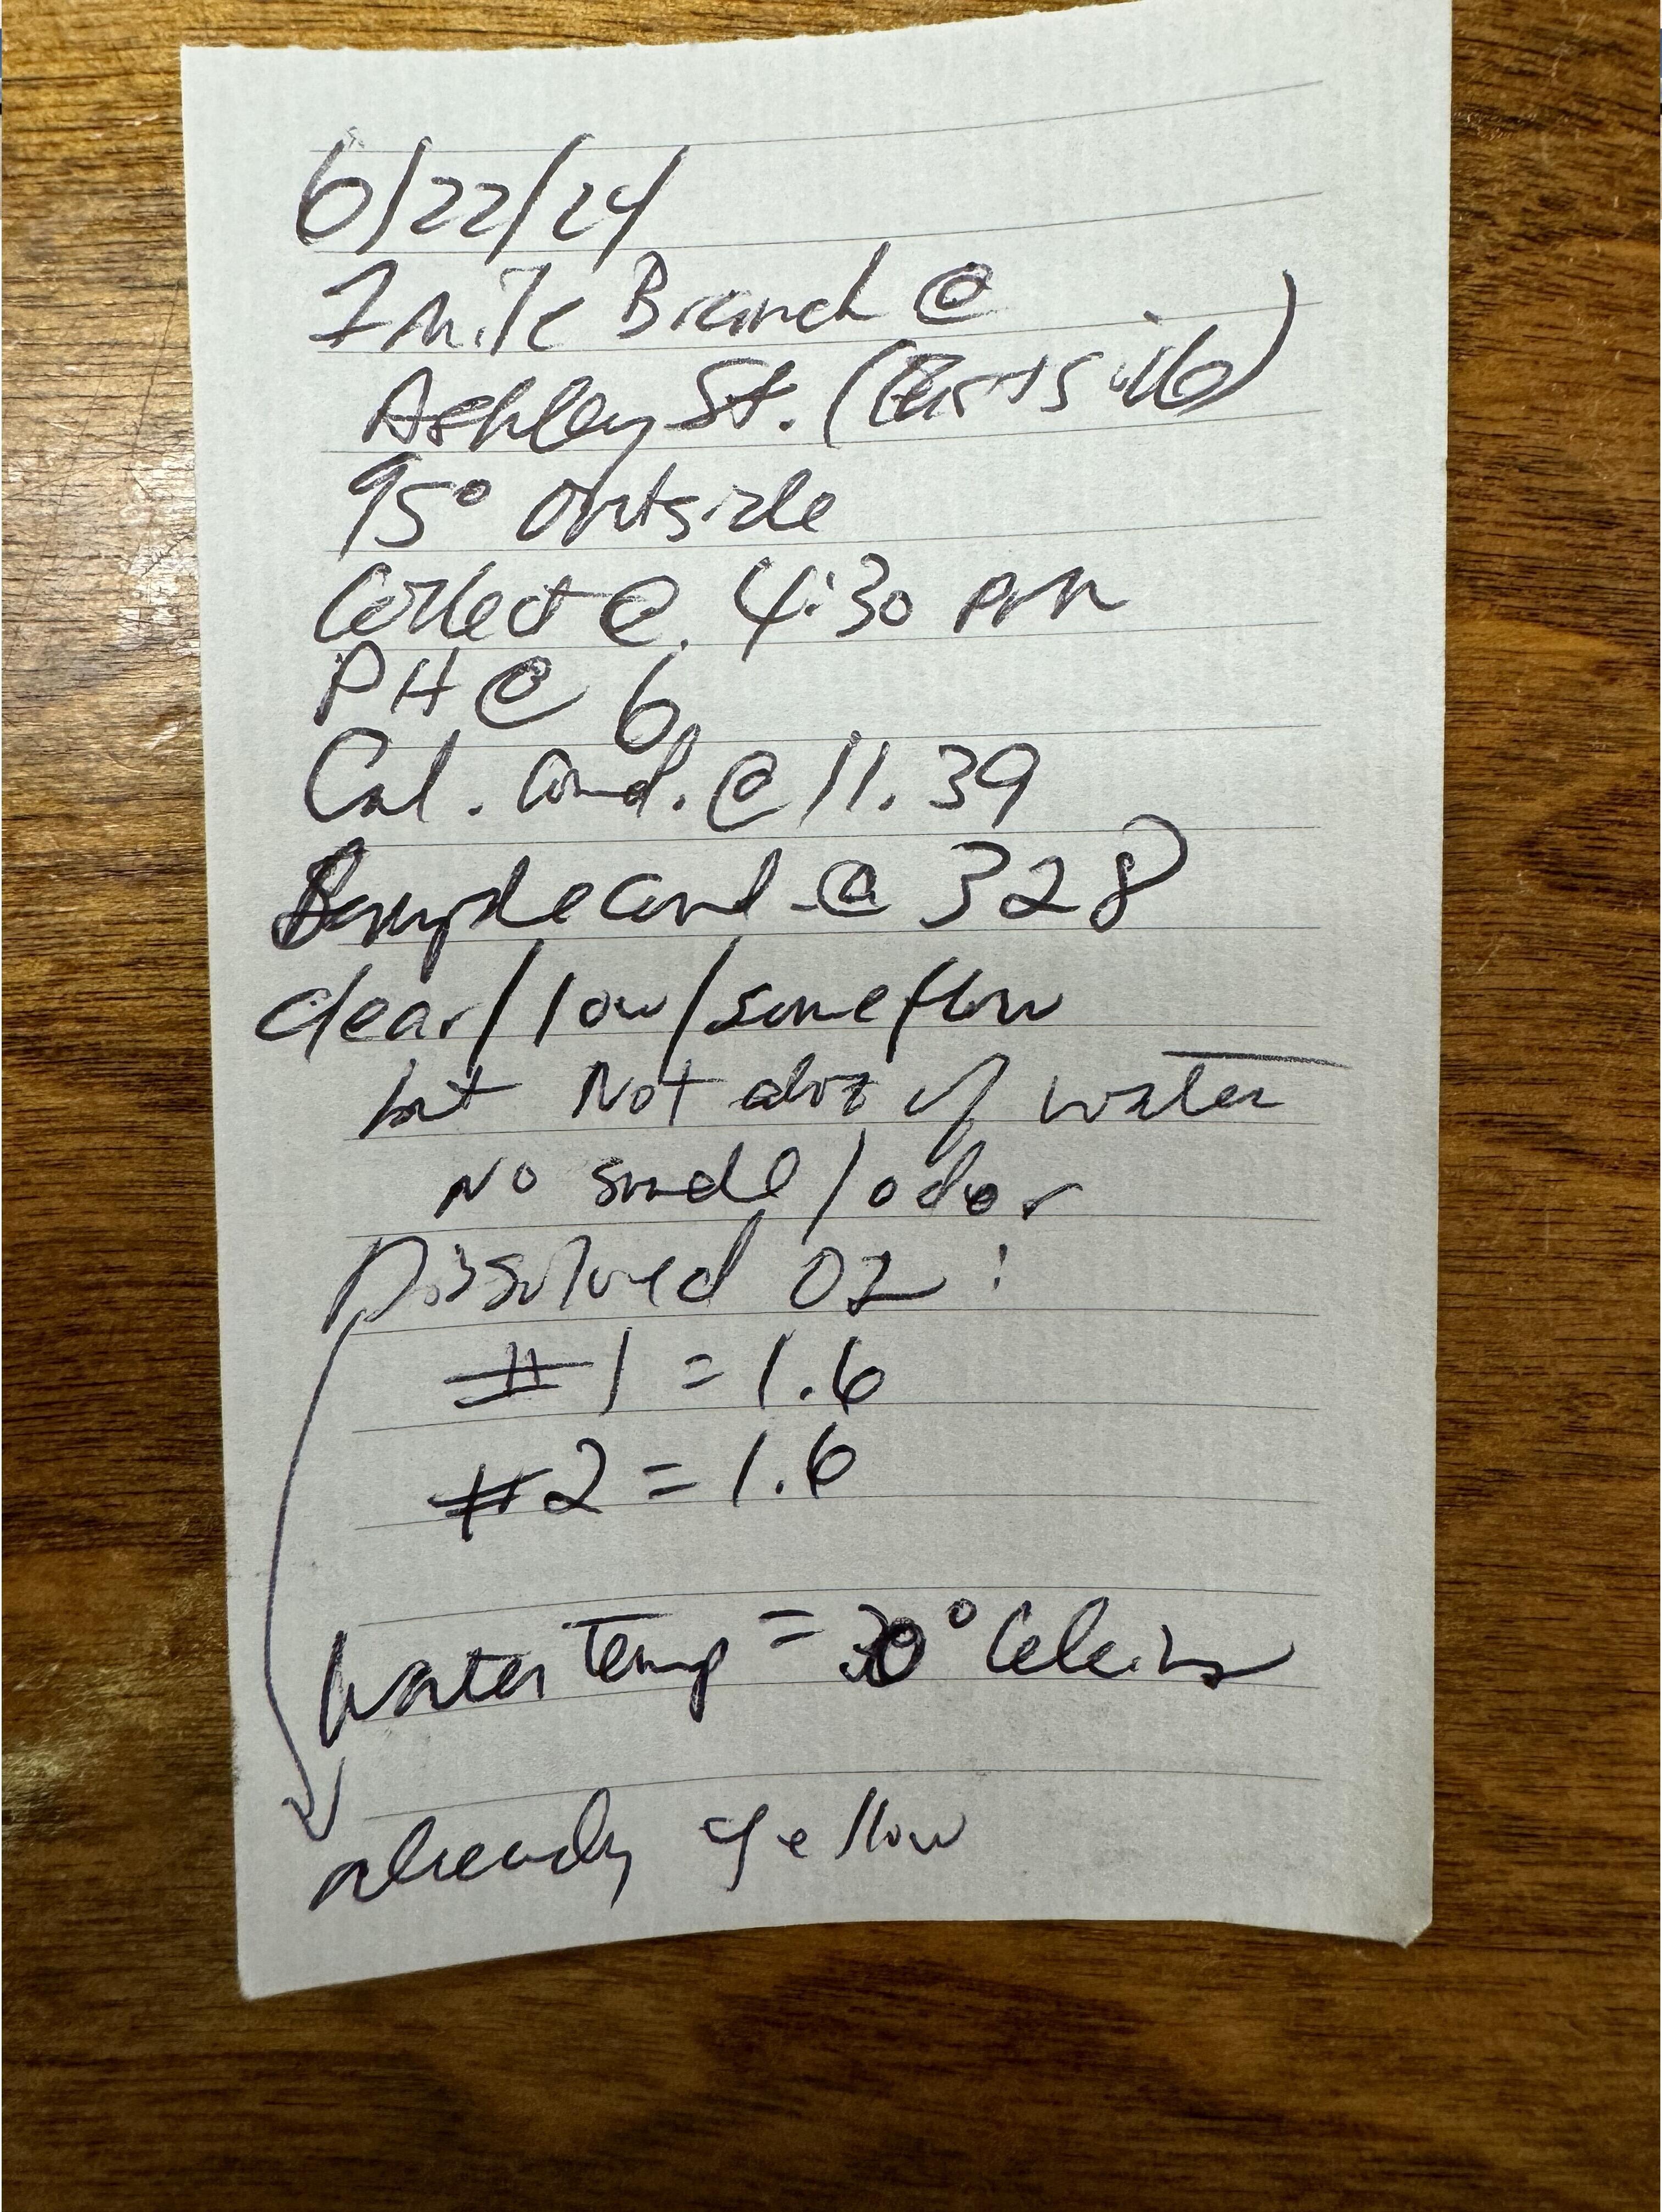 6/22/24
1 Mile Branch @
Ashley St. (East Side)
95° outside
Collect @ 4:30 pm
PH @ 6
Cal. Cond. @ 11.39
Sample Cond @ 328
clear/low/some flow
but Not a lot of water
No smell/odor
Dissolved O2:
#1 = 1.6
#2 = 1.6
Water Temp = 30° Celcius
already yellow